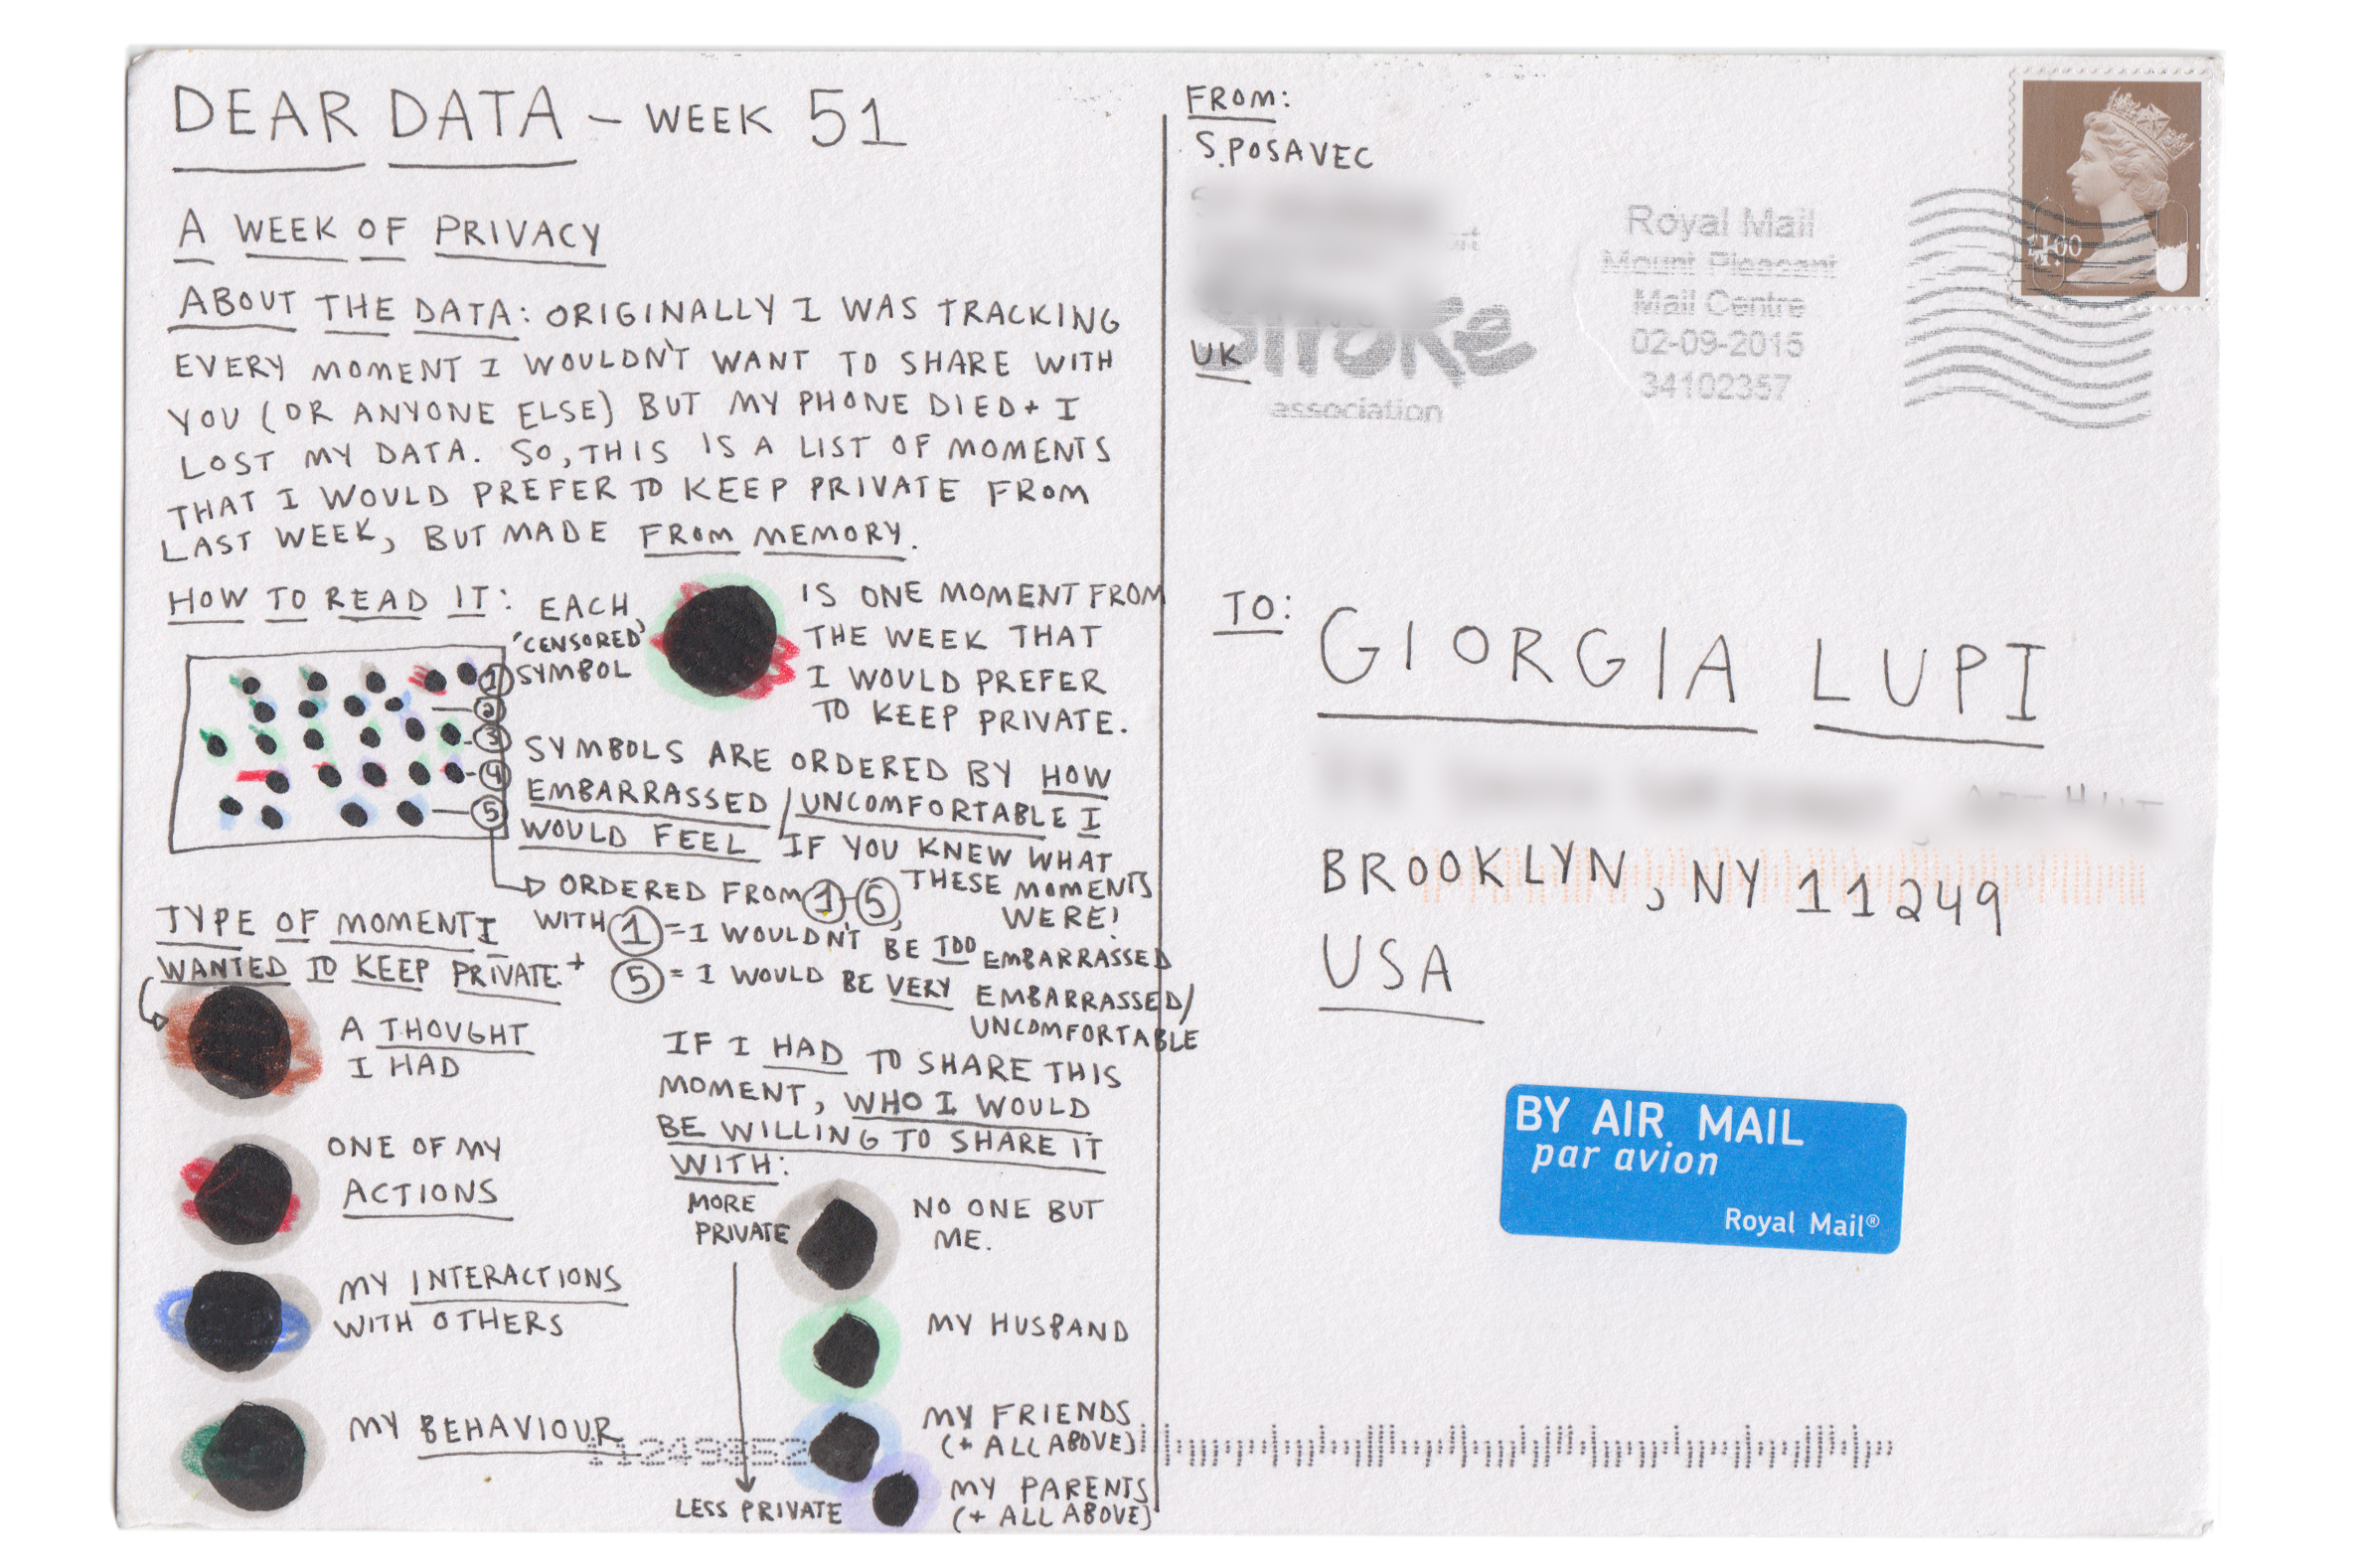 DEAR DATA - WEEK 51
A WEEK OF PRIVACY
ABOUT THE DATA: ORIGINALLY I WAS TRACKING
EVERY MOMENT I WOULDN'T WANT TO SHARE WITH
YOU (OR ANYONE ELSE) BUT MY PHONE DIED + I
LOST MY DATA. SO, THIS IS A LIST OF MOMENTS
THAT I WOULD PREFER TO KEEP PRIVATE FROM
LAST WEEK, BUT MADE FROM MEMORY.
HOW TO READ IT: EACH
'CENSORED'
SYMBOL
IS ONE MOMENT FROM
THE WEEK THAT
I WOULD PREFER
TO KEEP PRIVATE.
1
2
3
4
5
SYMBOLS ARE ORDERED BY HOW
EMBARRASSED/UNCOMFORTABLE I
WOULD FEEL IF YOU KNEW WHAT
THESE MOMENTS
WERE!
ORDERED FROM 1-5,
WITH 1 = I WOULDN'T BE TOO EMBARRASSED
+ 5 = I WOULD BE VERY EMBARRASSED/
UNCOMFORTABLE
TYPE OF MOMENT I
WANTED TO KEEP PRIVATE
A THOUGHT
I HAD
ONE OF MY
ACTIONS
MY INTERACTIONS
WITH OTHERS
MY BEHAVIOUR
IF I HAD TO SHARE THIS
MOMENT, WHO I WOULD
BE WILLING TO SHARE IT
WITH:
MORE
PRIVATE
NO ONE BUT
ME.
MY HUSBAND
MY FRIENDS
(+ ALL ABOVE)
MY PARENTS
(+ ALL ABOVE)
LESS PRIVATE
FROM:
S. POSAVEC
UK
association
Royal Mail
Mount Pleasant
Mail Centre
02-09-2015
34102357
£1.00
TO: GIORGIA LUPI
BROOKLYN, NY 11249
USA
BY AIR MAIL
par avion
Royal Mail®